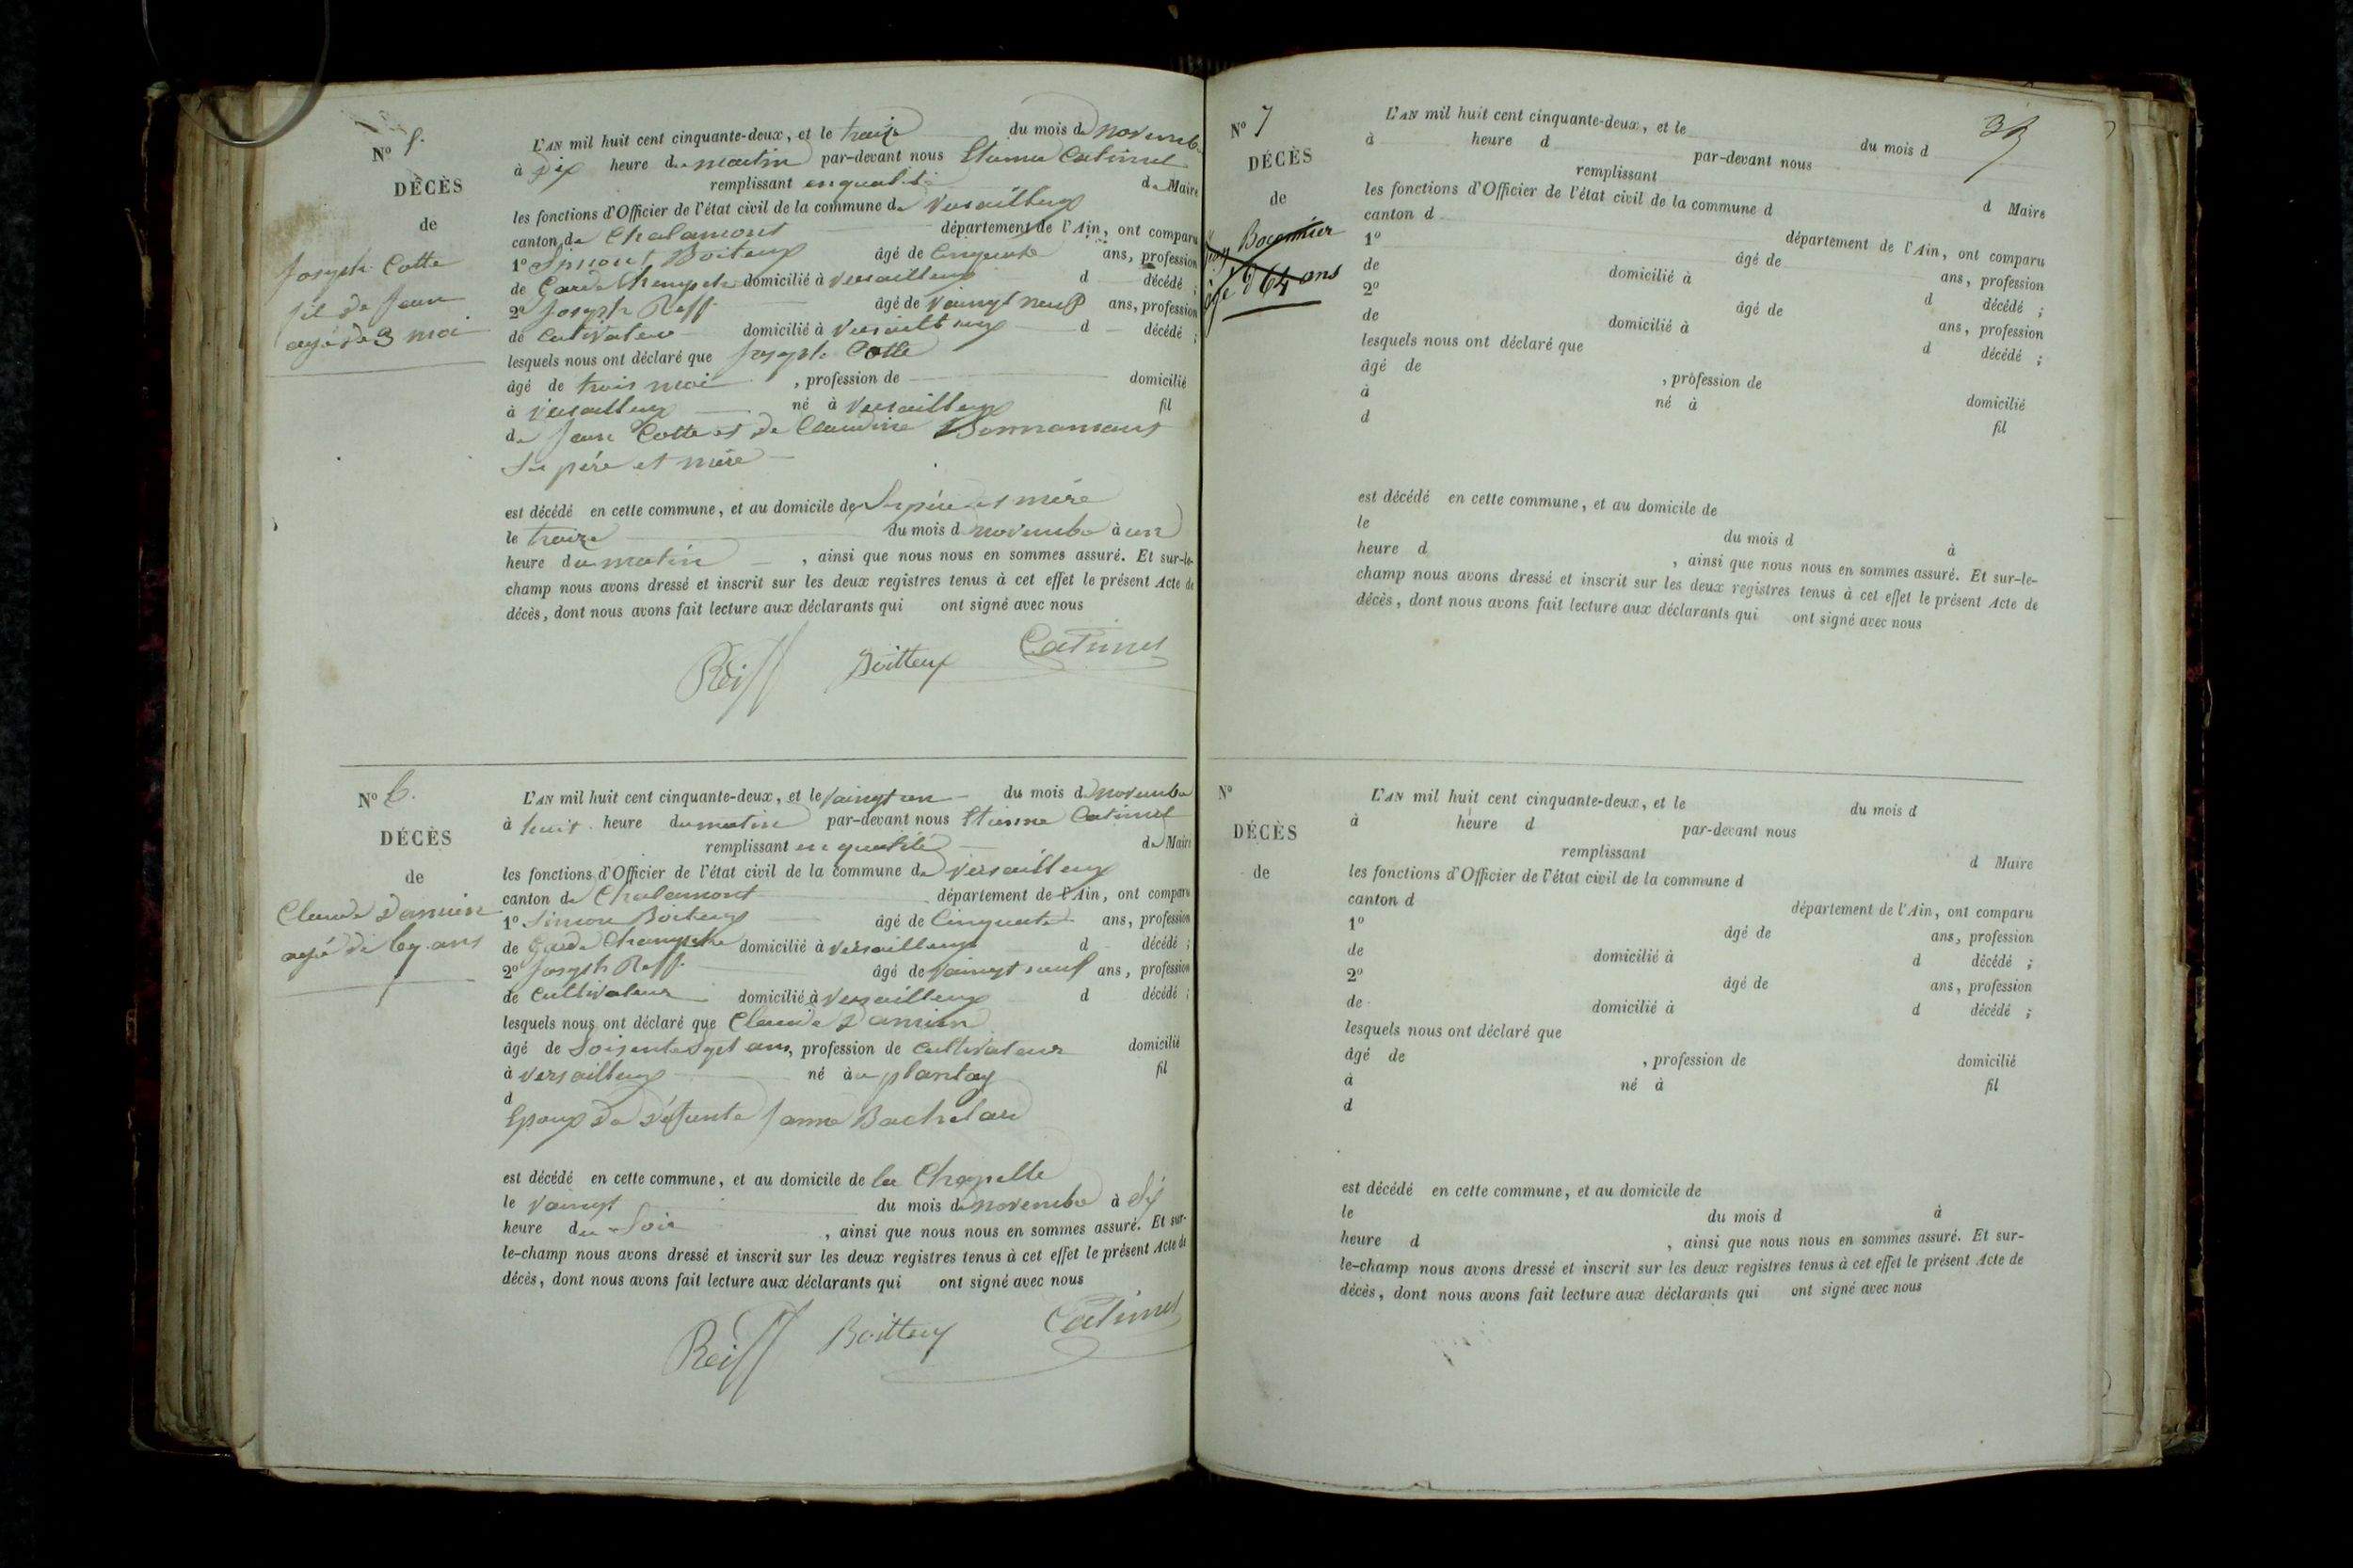 N° 5.
DÉCÈS
de
Joseph Cotte
fil de Jean
agé de 3 moi
L'AN mil huit cent cinquante-deux, et le traize du mois de novembre
à dix heure du matin par-devant nous Etienne Catimel
remplissant en qualité de Maire
les fonctions d'Officier de l'état civil de la commune de Versailleux
canton de Chalamont département de l'Ain, ont comparu
1° Simont Boiteux âgé de Cinquante ans, profession
de Garde Champetre domicilié à Versailleux d décédé ;
2° Joseph Reff âgé de vaingt neuf ans, profession
de Cultivateur domicilié à Versailleux d décédé ;
lesquels nous ont déclaré que Joseph Cotte
âgé de trois moi , profession de domicilié
à Versailleux né à Versailleux fil
de Jean Cotte et de Claudine
Se père et mère
est décédé en cette commune, et au domicile de Se père et mère
le traize du mois de novembre à un
heure du matin , ainsi que nous nous en sommes assuré. Et sur-le-
champ nous avons dressé et inscrit sur les deux registres tenus à cet effet le présent Acte de
décès, dont nous avons fait lecture aux déclarants qui ont signé avec nous
Reiff Boitteux Catimel
N° 6.
DÉCÈS
de
Claude Damien
agé de 67 ans
L'AN mil huit cent cinquante-deux, et le vaingt un du mois de novembre
à huit heure du matin par-devant nous Etienne Catimel
remplissant en qualité de Maire
les fonctions d'Officier de l'état civil de la commune de Versailleux
canton de Chalamont département de l'Ain, ont comparu
1° Simon Boiteux âgé de Cinquante ans, profession
de Garde Champetre domicilié à Versailleux d décédé ;
2° Joseph Reff âgé de vaingt neuf ans, profession
de Cultivateur domicilié à Versailleux d décédé ;
lesquels nous ont déclaré que Claude Damien
âgé de Soisente Sept ans, profession de Cultivateur domicilié
à Versailleux né au plantay fil
d
Epoux de défunte Janne Bachelard
est décédé en cette commune, et au domicile de la Chapelle
le vaingt du mois de novembre à Six
heure du Soir , ainsi que nous nous en sommes assuré. Et sur-
le-champ nous avons dressé et inscrit sur les deux registres tenus à cet effet le présent Acte de
décès, dont nous avons fait lecture aux déclarants qui ont signé avec nous
Reiff Boitteux Catimel
N° 7
DÉCÈS
de
Boconnier
âgé d 64 ans
L'AN mil huit cent cinquante-deux, et le du mois d
à heure d par-devant nous
remplissant d Maire
les fonctions d'Officier de l'état civil de la commune d
canton d département de l'Ain, ont comparu
1° âgé de ans, profession
de domicilié à d décédé ;
2° âgé de ans, profession
de domicilié à d décédé ;
lesquels nous ont déclaré que
âgé de , profession de domicilié
à né à fil
d
est décédé en cette commune, et au domicile de
le du mois d à
heure d , ainsi que nous nous en sommes assuré. Et sur-le-
champ nous avons dressé et inscrit sur les deux registres tenus à cet effet le présent Acte de
décès, dont nous avons fait lecture aux déclarants qui ont signé avec nous
N°
DÉCÈS
de
L'AN mil huit cent cinquante-deux, et le du mois d
à heure d par-devant nous
remplissant d Maire
les fonctions d'Officier de l'état civil de la commune d
canton d département de l'Ain, ont comparu
1° âgé de ans, profession
de domicilié à d décédé ;
2° âgé de ans, profession
de domicilié à d décédé ;
lesquels nous ont déclaré que
âgé de , profession de domicilié
à né à fil
d
est décédé en cette commune, et au domicile de
le du mois d à
heure d , ainsi que nous nous en sommes assuré. Et sur-
le-champ nous avons dressé et inscrit sur les deux registres tenus à cet effet le présent Acte de
décès, dont nous avons fait lecture aux déclarants qui ont signé avec nous